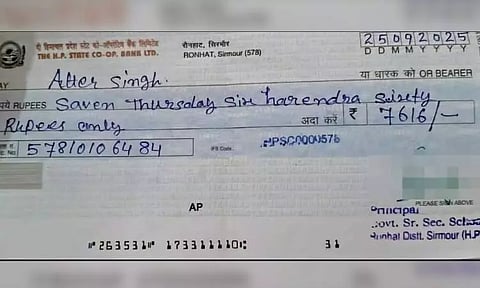 दी हिमाचल प्रदेश स्टेट को-ऑपरेटिव बैंक लिमिटेड
THE H.P. STATE CO-OP. BANK LTD.
रोनहाट, सिरमौर
RONHAT, Sirmour (578)
25092025
D D M M Y Y Y Y
AY Atter Singh. या धारक को OR BEARER
पये RUPEES Saven Thursday Six harendra sixty
Rupees only अदा करें ₹ 7616/-
57810106484
IFS Code: HPSC0000578
PLEASE SIGN ABOVE
AP
Principal
Govt. Sr. Sec. School
Ronhat Distt. Sirmour (H.P
"263531" 173311110: 31